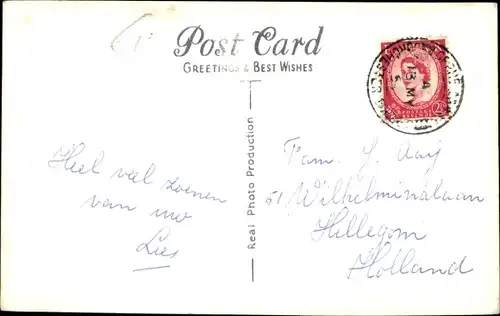 Post Card
GREETINGS & BEST WISHES
Real Photo Production
Heel veel zoenen
van uw
Lies
Fam. J.
51 Wilhelminalaan
Hillegom
Holland
A
13 MY
2½